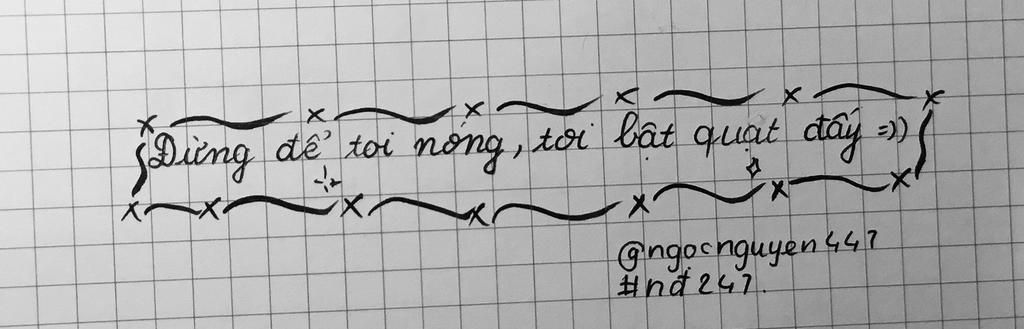 Đừng để tôi nóng, tôi bật quạt đấy =))
@ngocnguyen447
#nđ247.